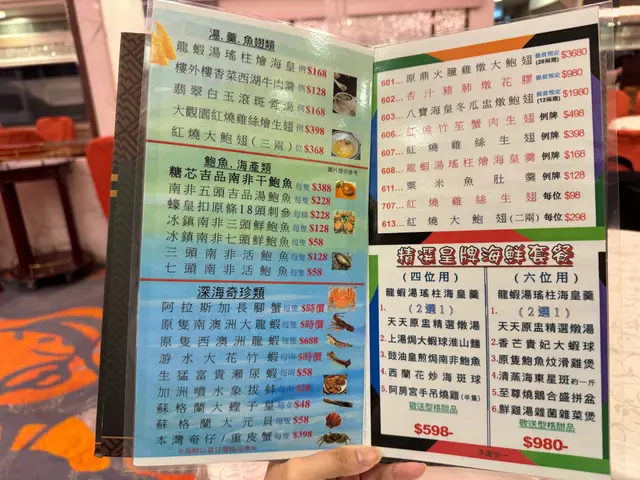 湯.羹.魚翅類
龍蝦湯瑤柱燴海皇 例$168
樓外樓香菜西湖牛肉羹 例$128
翡翠白玉滾斑骨湯 例$168
大觀園紅燒雞絲燴生翅 例$398
紅燒大鮑翅(三兩) 位$368
鮑魚.海產類
糖芯吉品南非干鮑魚 每隻$388
南非五頭吉品湯鮑魚 每隻$228
蠔皇扣原條18頭刺參 每條$228
冰鎮南非三頭鮮鮑魚 每隻$128
冰鎮南非七頭鮮鮑魚 每隻$58
三頭南非活鮑魚 每隻$128
七頭南非活鮑魚 每隻$58
深海奇珍類
阿拉斯加長腳蟹 每隻$時價
原隻南澳洲大龍蝦 每隻$時價
原隻西澳洲龍蝦 每隻$688
游水大花竹蝦 每兩$時價
生猛富貴瀨尿蝦 每隻$58
加洲噴水象拔蚌 每兩$28
蘇格蘭大蟶子皇 每隻$48
蘇格蘭大元貝 每隻$58
本灣奄仔/重皮蟹 每隻$398
601...原鼎火腫雞燉大鮑翅 提前預定(28兩翅) $3680
602...杏汁豬肺燉花膠 提前預定 $980
603...八寶海皇冬瓜盅燉鮑翅 提前預定(12兩翅) $1980
606...紅燒竹笙蟹肉生翅 例牌 $498
...紅燒雞絲生翅 例牌 $398
608...龍蝦湯瑤柱燴海皇羹 例牌 $168
611...粟米魚肚羹 例牌 $128
707...紅燒雞絲生翅 每位 $98
613...紅燒大鮑翅(二兩) 每位 $298
精選皇牌海鮮套餐
(四位用)
龍蝦湯瑤柱燴海皇羹
1. (2選1)
天天原盅精選燉湯
2.上湯焗大蝦球淮山麵
3.豉油皇煎焗南非鮑魚
4.西蘭花炒海斑球
5.阿房宮手吊燒雞(半隻)
敬送型格甜品
$598-
(六位用)
龍蝦湯瑤柱燴海皇羹
1. (2選1)
天天原盅精選燉湯
2.香芒貴妃大蝦球
3.原隻鮑魚炆滑雞煲
4.清蒸海東星斑約一斤
5.至尊燒鵝合盛拼盆
6.鮮雞湯雜菌雜菜煲
敬送型格甜品
$980-